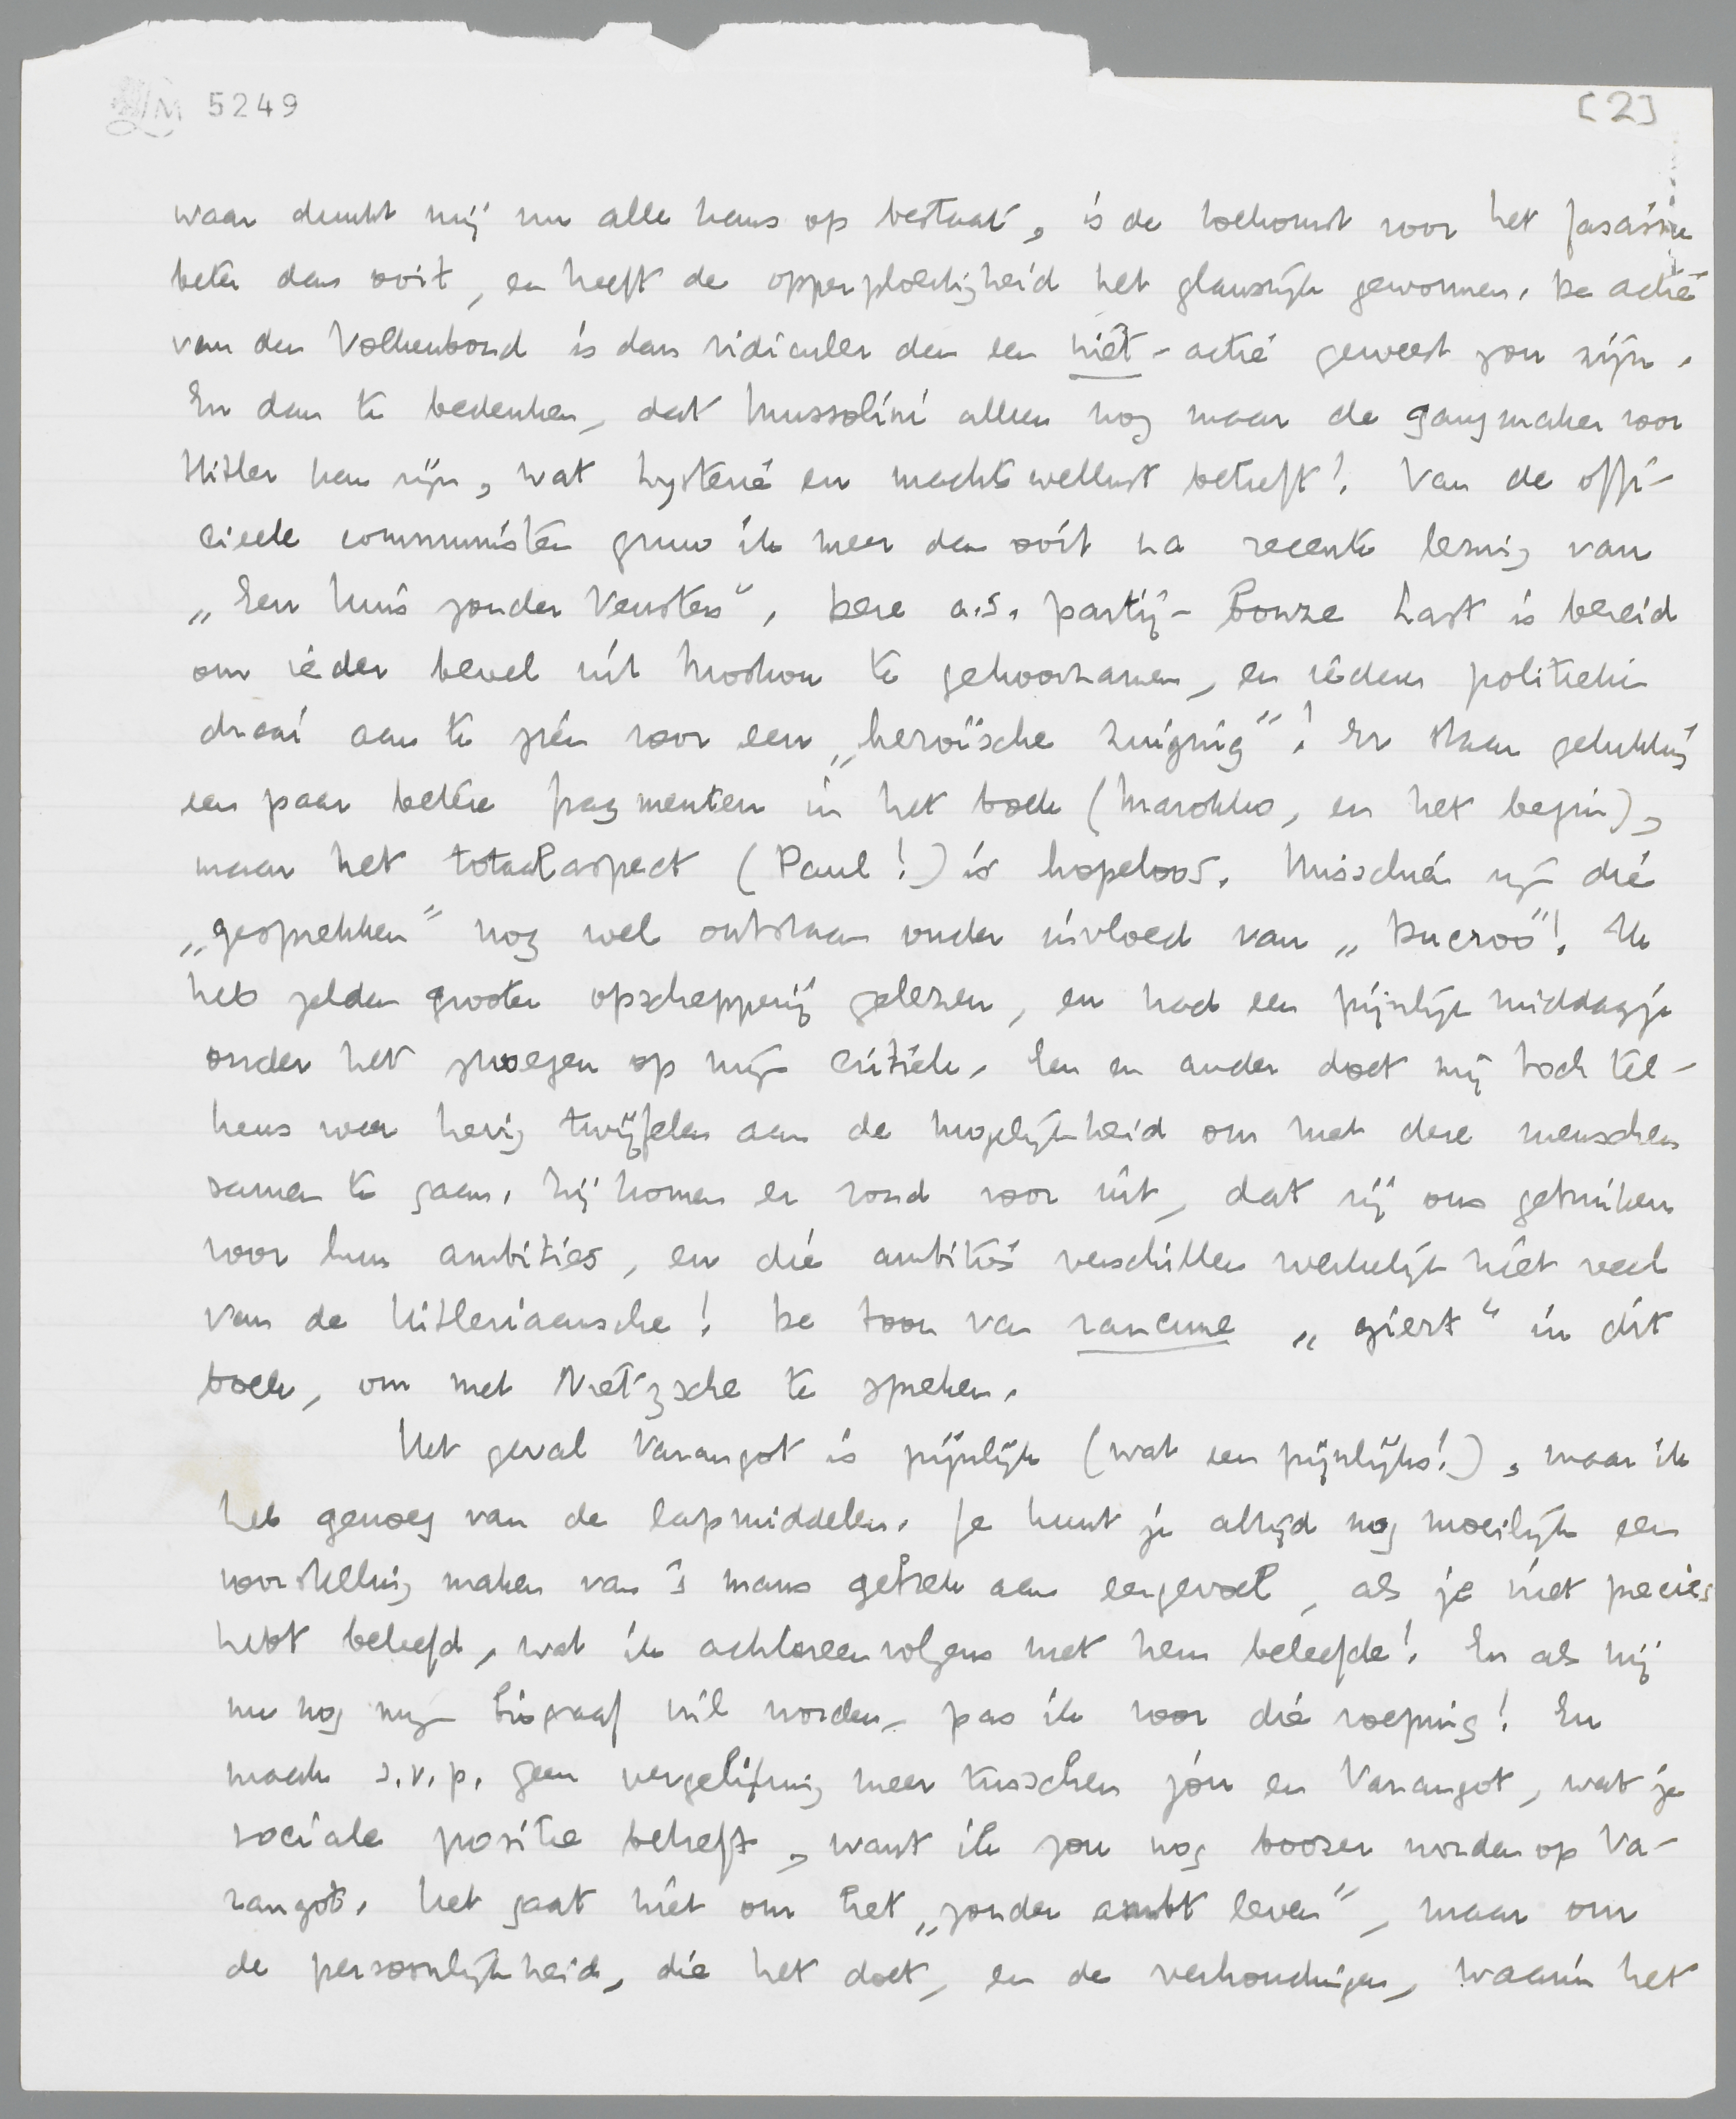 LM 5249
[2]
waar dunkt mij nu alle kans op bestaat, is de toekomst voor het fascisme
beter dan ooit, en heeft de opperploertigheid het glansrijk gewonnen. De actie
van den Volkenbond is dan ridiculer dan een niet-actie geweest zou zijn.
En dan te bedenken, dat Mussolini alleen nog maar de gangmaker voor
Hitler kan zijn, wat hysterie en machtswellust betreft! Van de offi-
cieele communisten gruw ik meer dan ooit na recente lezing van
„Een huis zonder Vensters". Deze a.s. partij-bonze Last is bereid
om ieder bevel uit Moskou te gehoorzamen, en iederen politieken
draai aan te zien voor een „heroïsche zuiging"! Er staan gelukkig
een paar betere fragmenten in het boek (Marokko, en het begin),
maar het totaalaspect (Paul!) is hopeloos. Misschien zijn die
„gesprekken" nog wel ontstaan onder invloed van „Ducroo"! Ik
heb zelden grooter opschepperij gelezen, en had een pijnlijk middagje
onder het zwoegen op mijn critiek. Een en ander doet mij toch tel-
kens weer hevig twijfelen aan de mogelijkheid om met deze menschen
samen te gaan. Zij komen er rond voor uit, dat zij ons gebruiken
voor hun ambities, en die ambities verschillen werkelijk niet veel
van de Hitleriaansche! De toon van rancune „giert" in dit
boek, om met Nietzsche te spreken.
Het geval Varangot is pijnlijk (wat een pijnlijks!), maar ik
heb genoeg van de lapmiddelen. Je kunt je altijd nog moeilijk een
voorstelling maken van 's mans gebrek aan eergevoel, als je niet precies
hebt beleefd, wat ik achtereenvolgens met hem beleefde! En als hij
nu nog mijn biograaf wil worden, pas ik voor die roeping! En
maak s.v.p. geen vergelijking meer tusschen jóu en Varangot, wat je
sociale positie betreft, want ik zou nog boozer worden op Va-
rangot. Het gaat niet om het „zonder ambt leven", maar om
de persoonlijkheid, die het doet, en de verhoudingen, waarin het